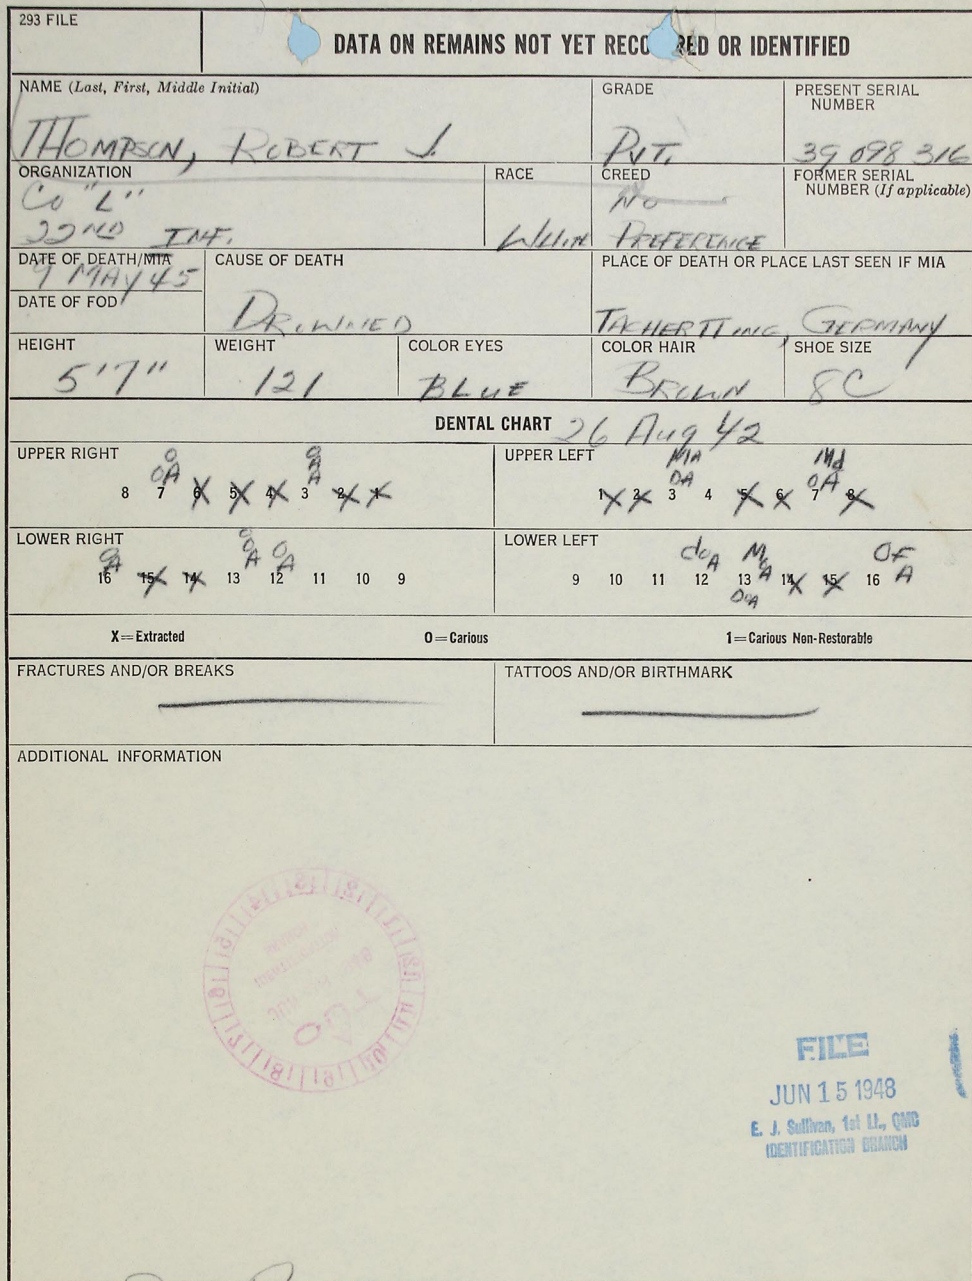 293 FILE
DATA ON REMAINS NOT YET RECOVERED OR IDENTIFIED
NAME (Last, First, Middle Initial)
THOMPSON, ROBERT J.
GRADE
PVT.
PRESENT SERIAL NUMBER
39 098 316
ORGANIZATION
Co "L"
22ND INF.
RACE
WHITE
CREED
NO
PREFERENCE
FORMER SERIAL NUMBER (If applicable)
DATE OF DEATH/MIA
9 MAY 45
DATE OF FOD
CAUSE OF DEATH
DROWNED
PLACE OF DEATH OR PLACE LAST SEEN IF MIA
TACHERTTING, GERMANY
HEIGHT
5'7"
WEIGHT
121
COLOR EYES
BLUE
COLOR HAIR
BROWN
SHOE SIZE
8C
DENTAL CHART 26 Aug 42
UPPER RIGHT
O O
OA A A
8 7 6 5 4 3 2 1
UPPER LEFT
OA Md OA
1 2 3 4 5 6 7 8
LOWER RIGHT
OA OOA OA
16 15 14 13 12 11 10 9
LOWER LEFT
doA MoA OF A
9 10 11 12 13 14 15 16
DOA
X=Extracted
O=Carious
1=Carious Non-Restorable
FRACTURES AND/OR BREAKS
TATTOOS AND/OR BIRTHMARK
ADDITIONAL INFORMATION
FILE
JUN 15 1948
E. J. Sullivan, 1st Lt., QMC
IDENTIFICATION BRANCH